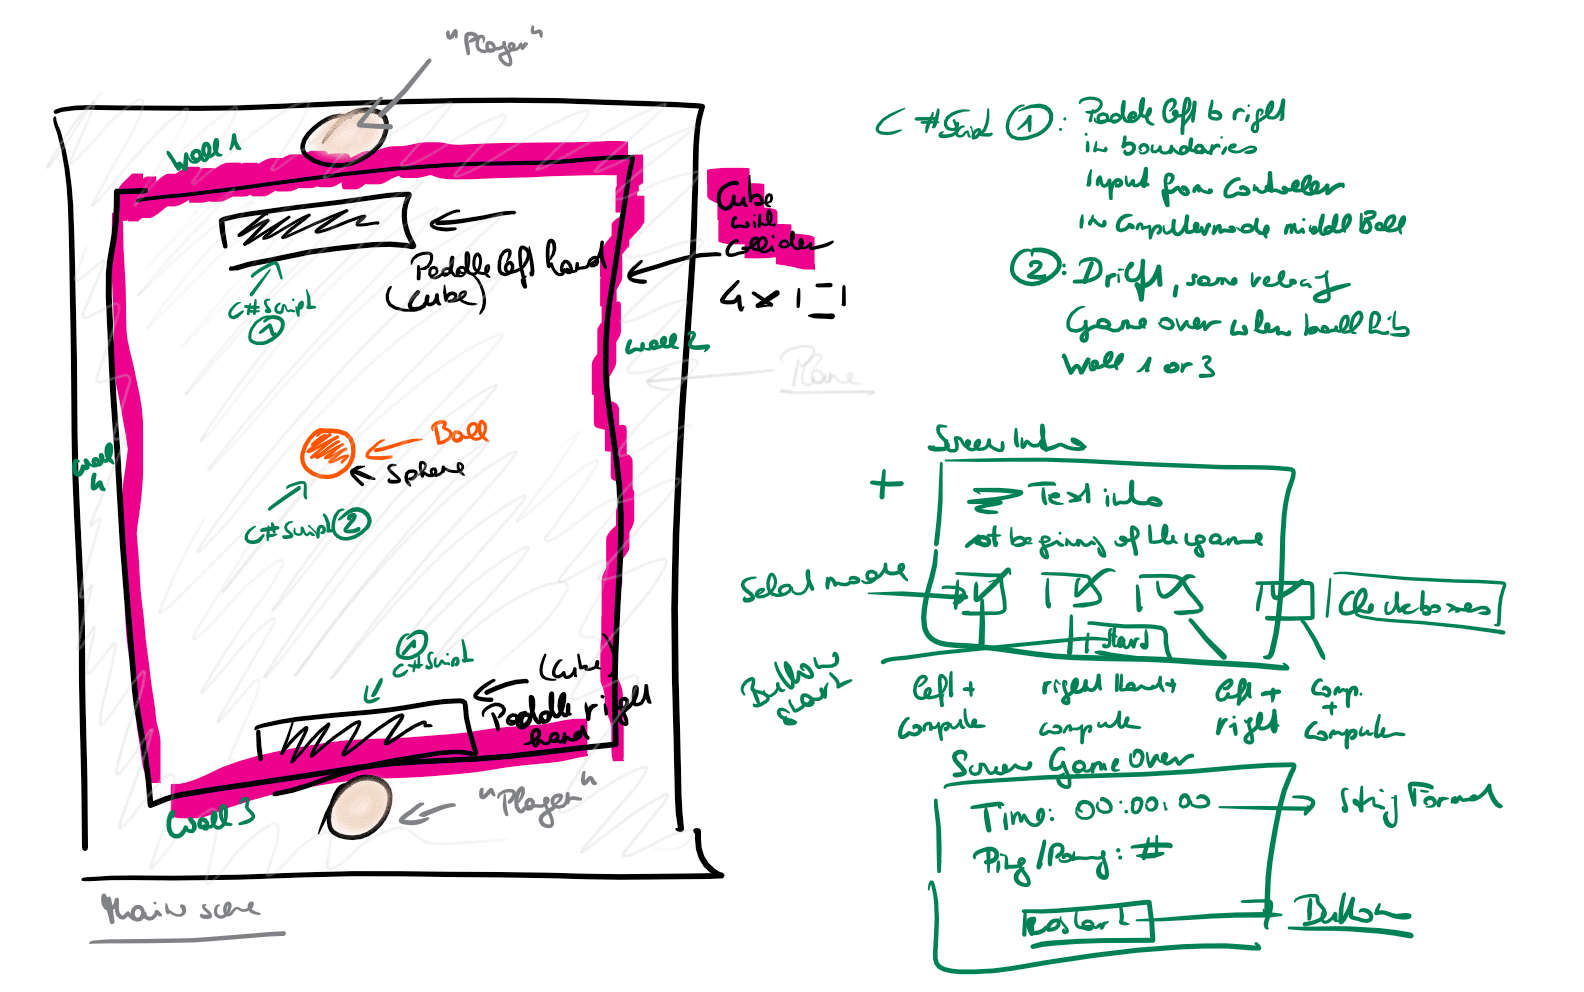 "Player"
Wall 1
Paddle left hand
(Cube)
C# Script
1
Cube
with
Collider
4 x 1
Wall 2
Plane
Wall
4
Ball
Sphere
C# Script 2
1
C# Script
(Cube)
Paddle right
hand
Wall 3
"Player"
Main scene
C# Script 1: Paddle left to right
in boundaries
Input from Controller
in Computermode middle Ball
2: Drift, same velocity
Game over when ball hits
Wall 1 or 3
Screen Intro
+
Text intro
at beginning of the game
Select mode
Checkboxes
Start
Button
start
left +
computer
right hand +
computer
left +
right
Comp.
+
Computer
Screen Game Over
Time: 00:00:00
String Format
Ping/Pong: #
Restart
Button